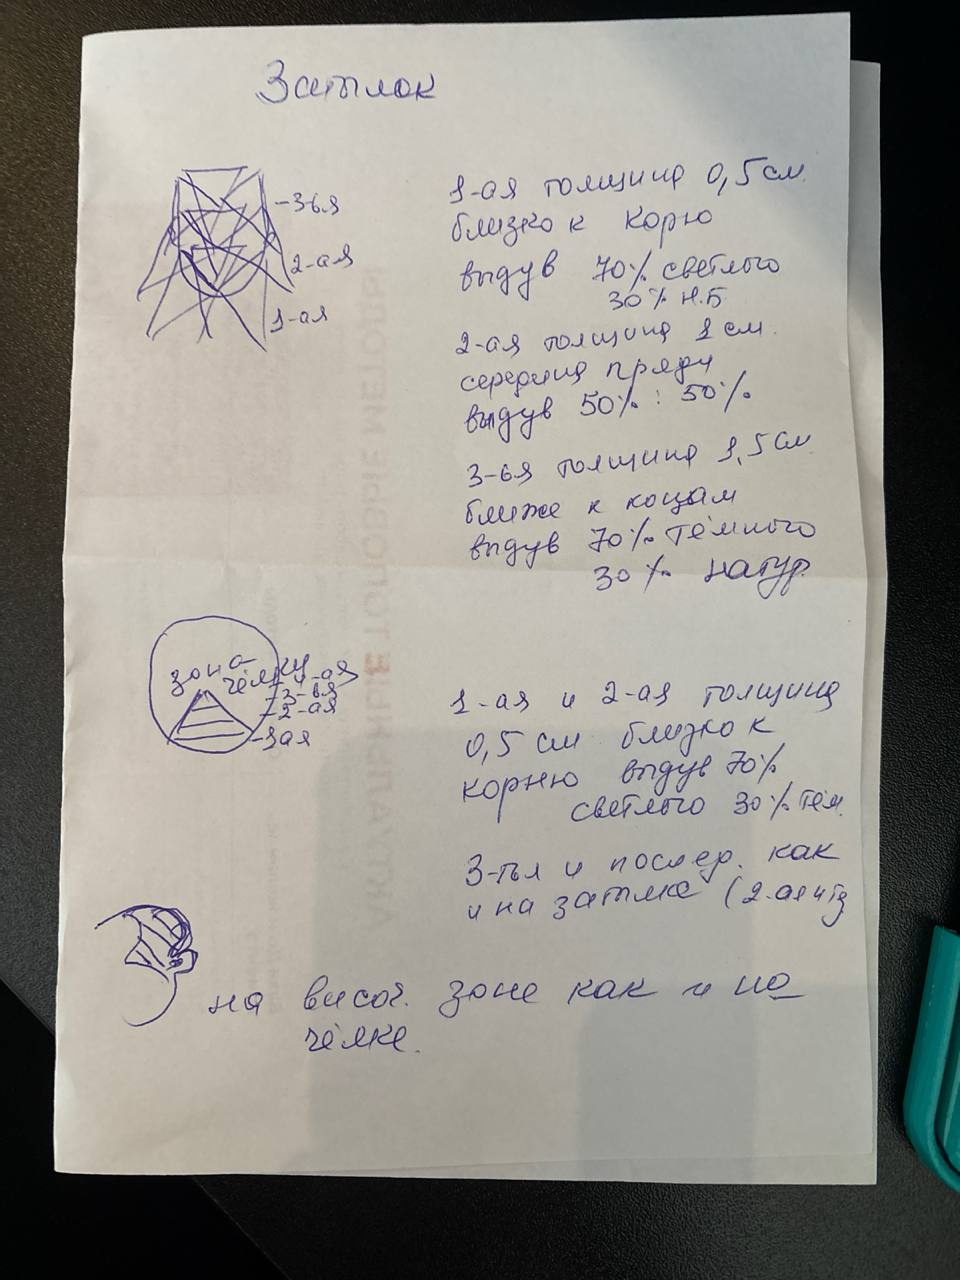 Затылок
-3-ья
2-ая
1-ая
1-ая толщина 0,5 см.
близко к корю
выдув 70% светлого
30% Н.Б.
2-ая толщина 1 см.
середина пряди
выдув 50% : 50%
3-ья толщина 1,5 см
ближе к коцам
выдув 70% тёмного
30% натур.
зона
чёлки
-4-ая
-3-ья
-2-ая
-1ая
1-ая и 2-ая толщина
0,5 см близко к
корню выдув 70%
светлого 30% тём.
3-тья и послед. как
и на затылке (2-ая и тд
на височ. зоне как и на
чёлке.
АКТУАЛЬНЫЕ ТОПОВЫЕ МЕТОДЫ